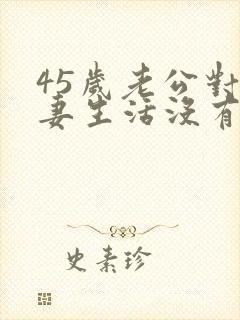 45歲老公對
妻生活沒有
史素珍